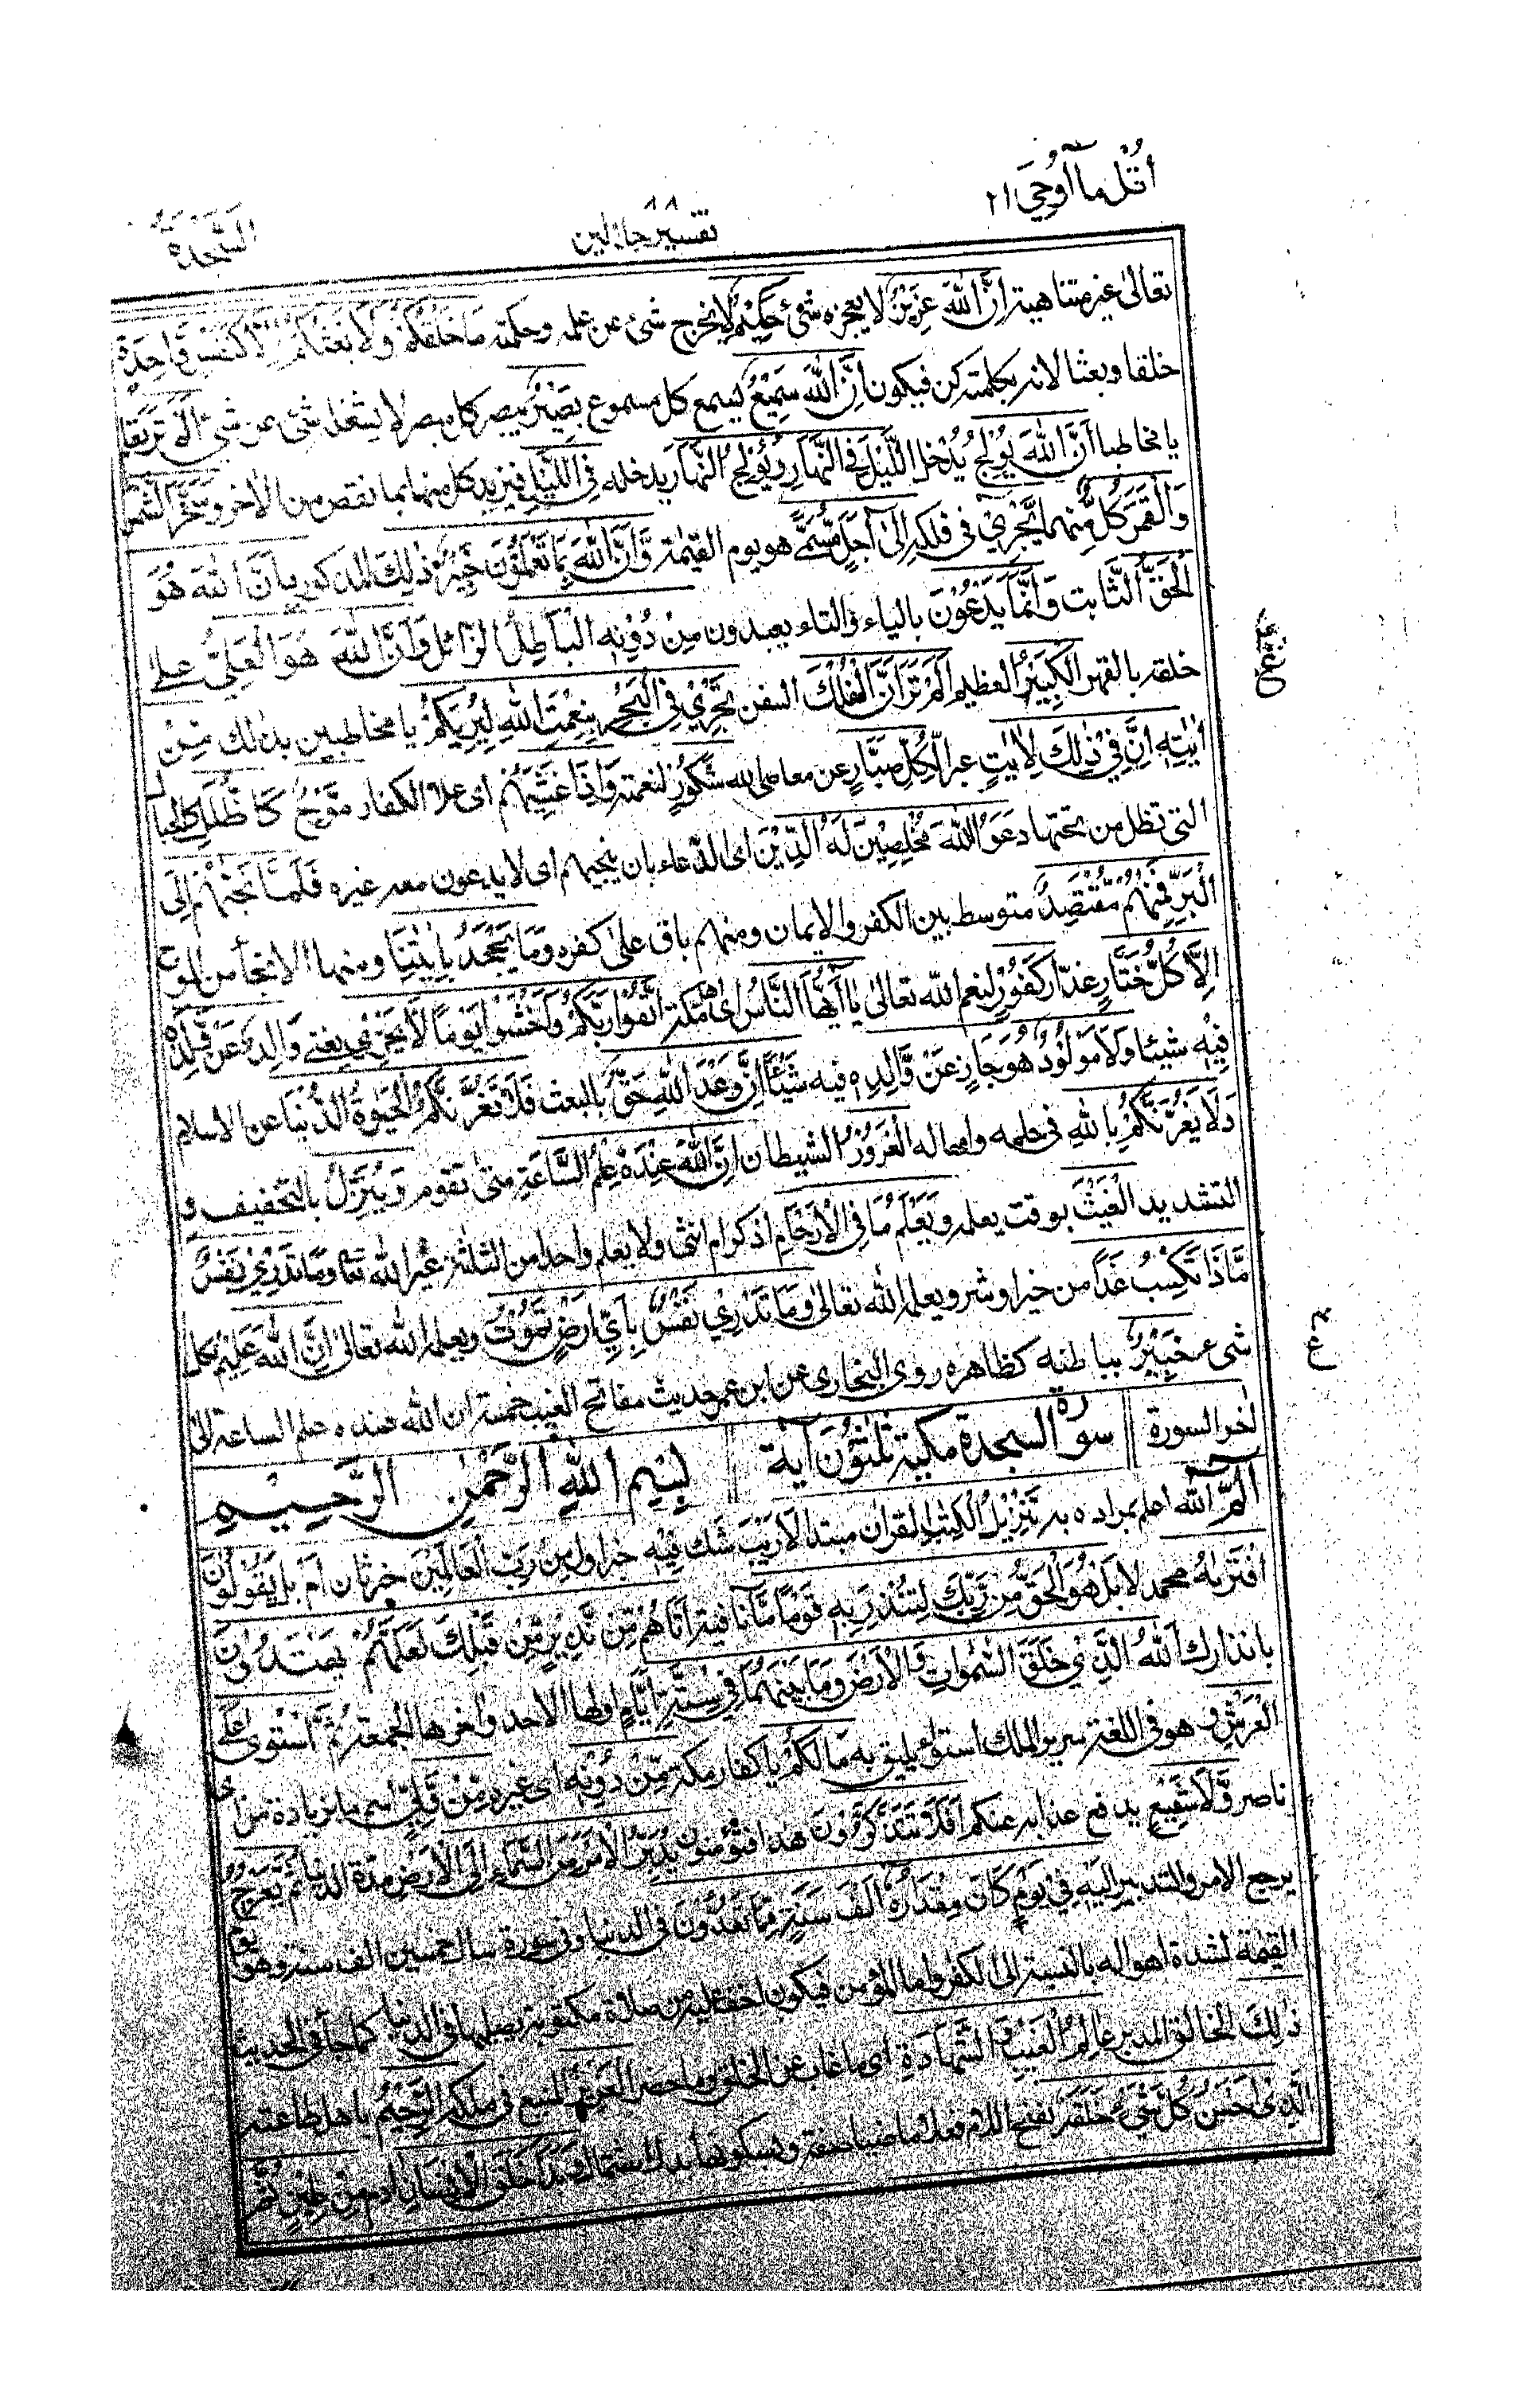 اُتْلُ مَا اُوْحِيَ ٢١
٨٨
تفسير جلالين
السَّجْدَة
تعالىٰ غير متناهية اِنَّ اللّٰهَ عَزِيْزٌ لا يعجزه شئ حَكِيْمٌ لا يخرج شئ عن علمه وحكمته مَا خَلْقُكُمْ وَلَا بَعْثُكُمْ اِلَّا كَنَفْسٍ وَّاحِدَةٍ
خلقا وبعثا لانه بكلمة كن فيكون اِنَّ اللّٰهَ سَمِيْعٌ يسمع كل مسموع بَصِيْرٌ يبصر كل مبصر لا يشغله شئ عن شئ اَلَمْ تَرَ تعلم
يا مخاطبا اَنَّ اللّٰهَ يُوْلِجُ يُدْخل الَّيْلَ فِي النَّهَارِ وَيُوْلِجُ النَّهَارَ يدخله فِي الَّيْلِ فيزيد كل منهما بما نقص من الاٰخر وَسَخَّرَ الشَّمْسَ
وَالْقَمَرَ كُلٌّ منهما يَّجْرِيْ في فلكه اِلٰى اَجَلٍ مُّسَمًّى هو يوم القيٰمة وَّاَنَّ اللّٰهَ بِمَا تَعْمَلُوْنَ خَبِيْرٌ ذٰلِكَ المذكور بِاَنَّ اللّٰهَ هُوَ
الْحَقُّ الثابت وَاَنَّ مَا يَدْعُوْنَ بالياء والتاء يعبدون مِنْ دُوْنِهِ الْبَاطِلُ الزائل وَاَنَّ اللّٰهَ هُوَ الْعَلِيُّ علىٰ
خلقه بالقهر الْكَبِيْرُ العظيم اَلَمْ تَرَ اَنَّ الْفُلْكَ السفن تَجْرِيْ فِي الْبَحْرِ بِنِعْمَتِ اللّٰهِ لِيُرِيَكُمْ يا مخاطبين بذٰلك مِّنْ
اٰيٰتِهٖ اِنَّ فِيْ ذٰلِكَ لَاٰيٰتٍ عبرا لِّكُلِّ صَبَّارٍ عن معاصى الله شَكُوْرٍ لنعمته وَاِذَا غَشِيَهُمْ اى علا الكفار مَّوْجٌ كَالظُّلَلِ كالجبال
التى تظل من تحتها دَعَوُا اللّٰهَ مُخْلِصِيْنَ لَهُ الدِّيْنَ اى الدعاء بان ينجيهم اى لا يدعون معه غيره فَلَمَّا نَجّٰهُمْ اِلَى
الْبَرِّ فَمِنْهُمْ مُّقْتَصِدٌ متوسط بين الكفر والايمان ومنهم باق علىٰ كفره وَمَا يَجْحَدُ بِاٰيٰتِنَا ومنها الانجاء من الموج
اِلَّا كُلُّ خَتَّارٍ غدّار كَفُوْرٍ لنعم الله تعالىٰ يٰاَيُّهَا النَّاسُ اى اهل مكة اتَّقُوْا رَبَّكُمْ وَاخْشَوْا يَوْمًا لَّا يَجْزِيْ يغنى وَالِدٌ عَنْ وَّلَدِهٖ
فيه شيئا وَلَا مَوْلُوْدٌ هُوَ جَازٍ عَنْ وَّالِدِهٖ فيه شَيْـًٔا اِنَّ وَعْدَ اللّٰهِ حَقٌّ بالبعث فَلَا تَغُرَّنَّكُمُ الْحَيٰوةُ الدُّنْيَا عن الاسلام
وَلَا يَغُرَّنَّكُمْ بِاللّٰهِ فى حلمه وامهاله الْغَرُوْرُ الشيطان اِنَّ اللّٰهَ عِنْدَهٗ عِلْمُ السَّاعَةِ متى تقوم وَيُنَزِّلُ بالتخفيف و
التشديد الْغَيْثَ بوقت يعلمه وَيَعْلَمُ مَا فِي الْاَرْحَامِ اذكر ام انثى ولا يعلم واحدا من الثلثة غير الله تعا وَمَا تَدْرِيْ نَفْسٌ
مَّاذَا تَكْسِبُ غَدًا من خير او شر ويعلمه الله تعالىٰ وَمَا تَدْرِيْ نَفْسٌ بِاَيِّ اَرْضٍ تَمُوْتُ ويعلمه الله تعالىٰ اِنَّ اللّٰهَ عَلِيْمٌ بكل
شىء خَبِيْرٌ بباطنه كظاهره روى البخارى عن ابن عمر حديث مفاتح الغيب خمسة ان الله عنده علم الساعة الىٰ
اٰخر السورة سورة السجدة مكية ثلٰثون اٰية بِسْمِ اللّٰهِ الرَّحْمٰنِ الرَّحِيْمِ
الٓمّٓ الله اعلم بمراده به تَنْزِيْلُ الْكِتٰبِ القراٰن مبتدأ لَا رَيْبَ شك فِيْهِ خبر اول مِنْ رَّبِّ الْعَالَمِيْنَ خبر ثان اَمْ بل يَقُوْلُوْنَ
افْتَرٰىهُ محمد لا بَلْ هُوَ الْحَقُّ مِنْ رَّبِّكَ لِتُنْذِرَ بِهٖ قَوْمًا مَّا نافية اَتٰىهُمْ مِّنْ نَّذِيْرٍ مِّنْ قَبْلِكَ لَعَلَّهُمْ يَهْتَدُوْنَ
بانذارك اَللّٰهُ الَّذِيْ خَلَقَ السَّمٰوٰتِ وَالْاَرْضَ وَمَا بَيْنَهُمَا فِيْ سِتَّةِ اَيَّامٍ اولها الاحد واٰخرها الجمعة ثُمَّ اسْتَوٰى عَلَى
الْعَرْشِ وهو فى اللغة سرير الملك استواء يليق به مَا لَكُمْ يا كفار مكة مِّنْ دُوْنِهٖ اى غيره مِنْ وَّلِيٍّ اسم ما بزيادة من اى
ناصر وَّلَا شَفِيْعٍ يدفع عذابه عنكم اَفَلَا تَتَذَكَّرُوْنَ هذا فتؤمنون يُدَبِّرُ الْاَمْرَ مِنَ السَّمَاءِ اِلَى الْاَرْضِ مدة الدنيا ثُمَّ يَعْرُجُ
يرجع الامر والتدبير اِلَيْهِ فِيْ يَوْمٍ كَانَ مِقْدَارُهٗ اَلْفَ سَنَةٍ مِّمَّا تَعُدُّوْنَ فى الدنيا وفى سورة سأل خمسين الف سنة وهو يوم
القيٰمة لشدة اهواله بالنسبة الى الكفر واما المؤمن فيكون اخف عليه من صلاة مكتوبة يصليها فى الدنيا كما جاء فى الحديث
ذٰلِكَ الخالق المدبر عَالِمُ الْغَيْبِ وَالشَّهَادَةِ اى ما غاب عن الخلق وما حضر الْعَزِيْزُ المنيع فى ملكه الرَّحِيْمُ باهل طاعته
الَّذِيْ اَحْسَنَ كُلَّ شَيْءٍ خَلَقَهٗ بفتح اللام فعلا ماضيا صفة وبسكونها بدل اشتمال وَبَدَاَ خَلْقَ الْاِنْسَانِ اٰدم مِنْ طِيْنٍ ثُمَّ